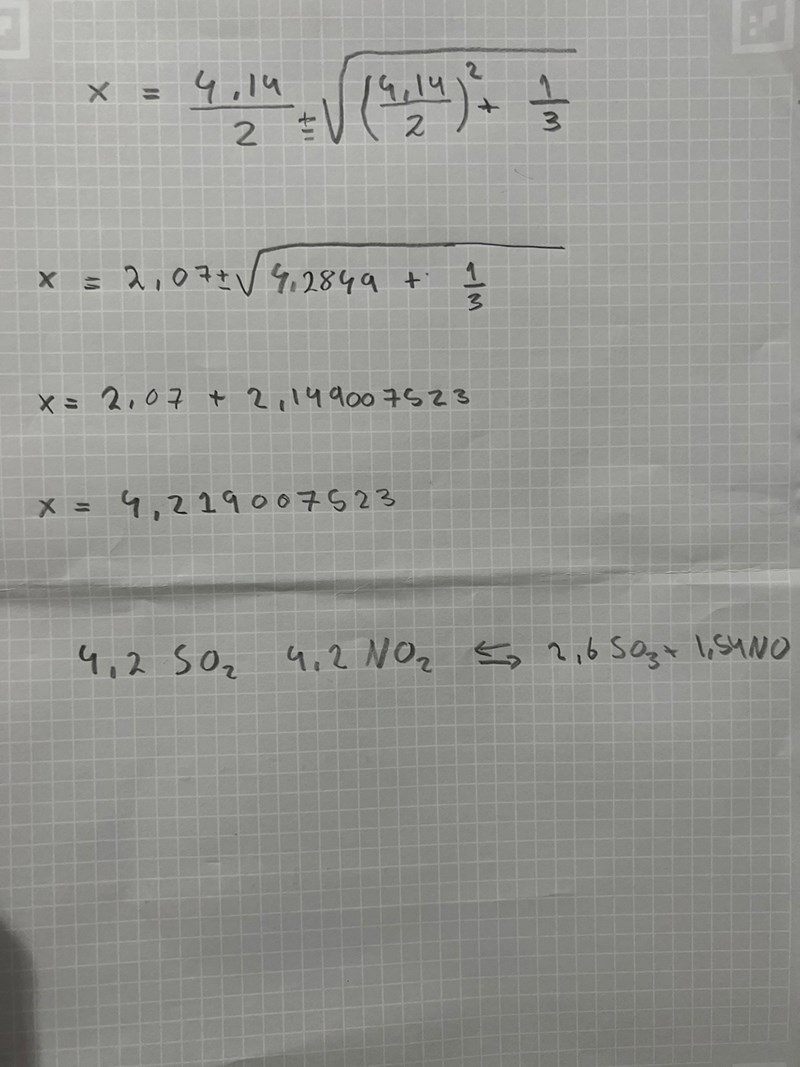 x = 4,14/2 ± √((4,14/2)² + 1/3)
x = 2,07 ± √(4,2849 + 1/3)
x = 2,07 + 2,149007523
x = 4,219007523
4,2 SO₂ 4,2 NO₂ ⇆ 2,6 SO₃ + 1,54 NO